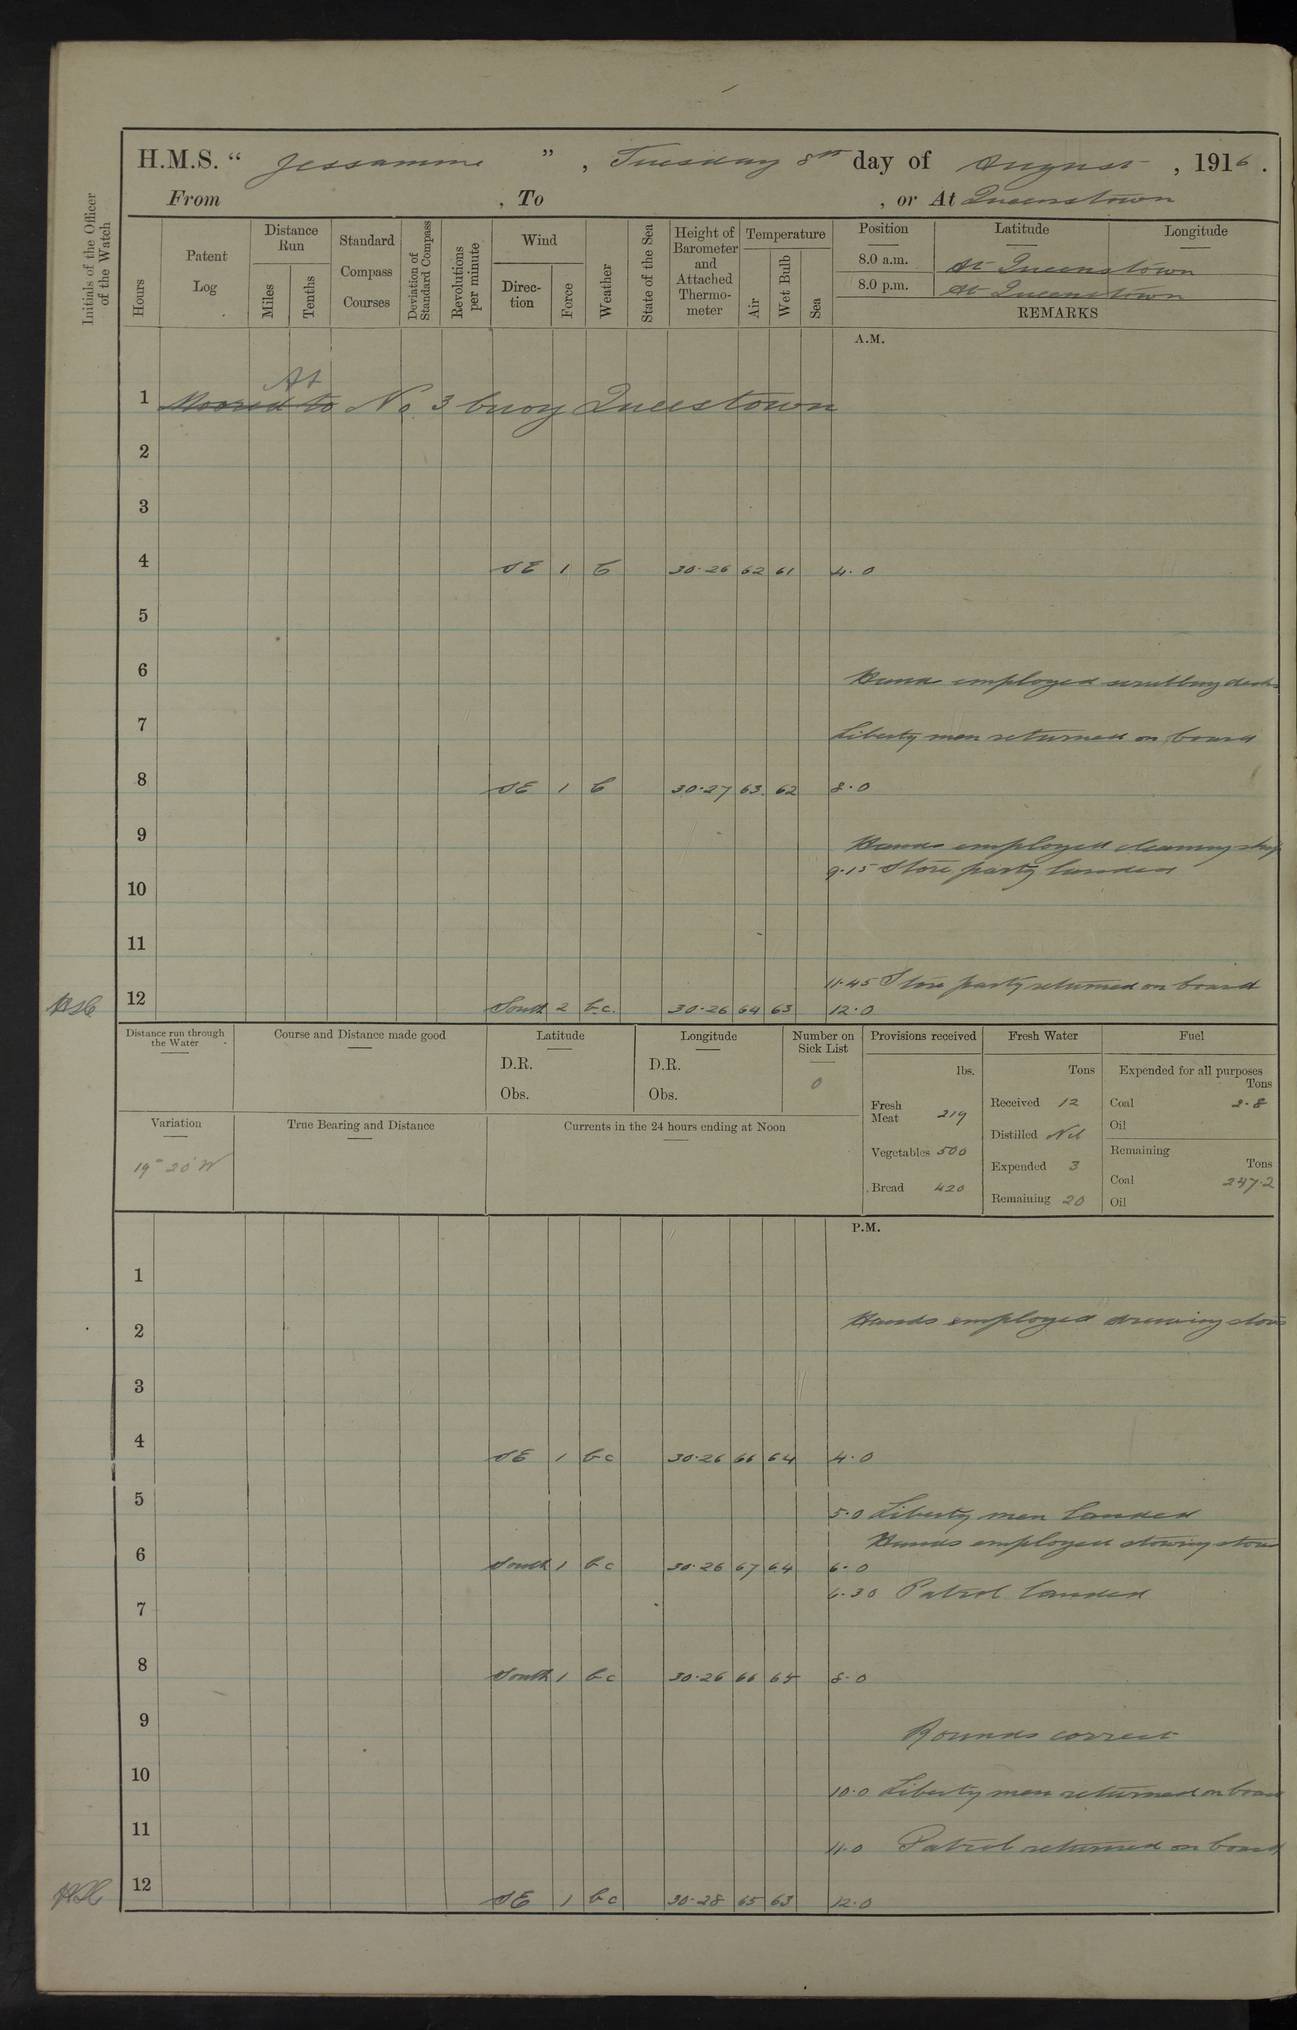 H.M.S. “ Jessamine ” , Tuesday 8th day of August , 1916 .
From , To , or At Queenstown
Initials of the Officer of the Watch
Hours
Patent Log
Distance Run
Miles
Tenths
Standard Compass Courses
Deviation of Standard Compass
Revolutions per minute
Wind
Direction
Force
Weather
State of the Sea
Height of Barometer and Attached Thermometer
Temperature
Air
Wet Bulb
Sea
Position Latitude Longitude
8.0 a.m. At Queenstown
8.0 p.m. At Queenstown
REMARKS
A.M.
At
1 Moored to No 3 buoy Queenstown
2
3
4 SE 1 C 30.26 62 61 4.0
5
6 Hands employed scrubbing decks
7 Liberty men returned on board
8 SE 1 C 30.27 63 62 8.0
9 Hands employed cleaning ship
9.15 Store party landed
10
11
11.45 Store party returned on board
12 South 2 b.c. 30.26 64 63 12.0
Distance run through the Water
Course and Distance made good
Latitude
D.R.
Obs.
Longitude
D.R.
Obs.
Number on Sick List
0
Provisions received
lbs.
Fresh Meat 219
Vegetables 500
Bread 420
Fresh Water
Tons
Received 12
Distilled Nil
Expended 3
Remaining 20
Fuel
Expended for all purposes
Tons
Coal 2.8
Oil
Remaining
Tons
Coal 247.2
Oil
Variation
19° 20' W
True Bearing and Distance
Currents in the 24 hours ending at Noon
P.M.
1
2 Hands employed drawing stores
3
4 SE 1 bc 30.26 66 64 4.0
5 5.0 Liberty men landed
Hands employed stowing stores
6 South 1 bc 30.26 67 64 6.0
6.30 Patrol landed
7
8 South 1 bc 30.26 66 65 8.0
9 Rounds correct
10 10.0 Liberty men returned on board
11 11.0 Patrol returned on board
12 SE 1 bc 30.28 65 63 12.0